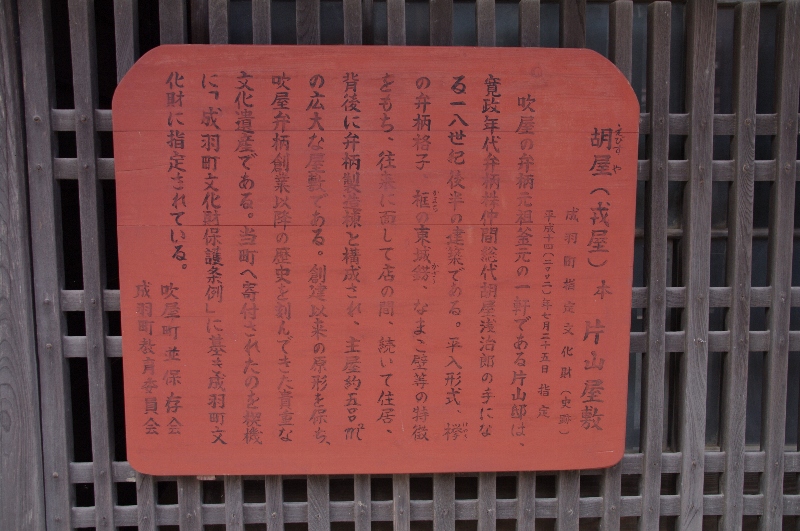 胡屋（戎屋）本片山屋敷
えびす　や
成羽町指定文化財（史跡）
平成十四（二〇〇二）年七月二十五日　指定
吹屋の弁柄元祖釜元の一軒である片山邸は、
寛政年代弁柄株仲間総代胡屋浅治郎の手にな
る一八世紀後半の建築である。平入形式、
の弁柄格子、框の東城錺、なまこ壁等の特徴
をもち、往来に面して店の間、続いて住居、
背後に弁柄製造棟と構成され、主屋約五百㎡
の広大な屋敷である。創建以来の原形を保ち、
吹屋弁柄創業以降の歴史を刻んできた貴重な
文化遺産である。当町へ寄付されたのを契機
に「成羽町文化財保護条例」に基き成羽町文
化財に指定されている。
吹屋町並保存会
成羽町教育委員会